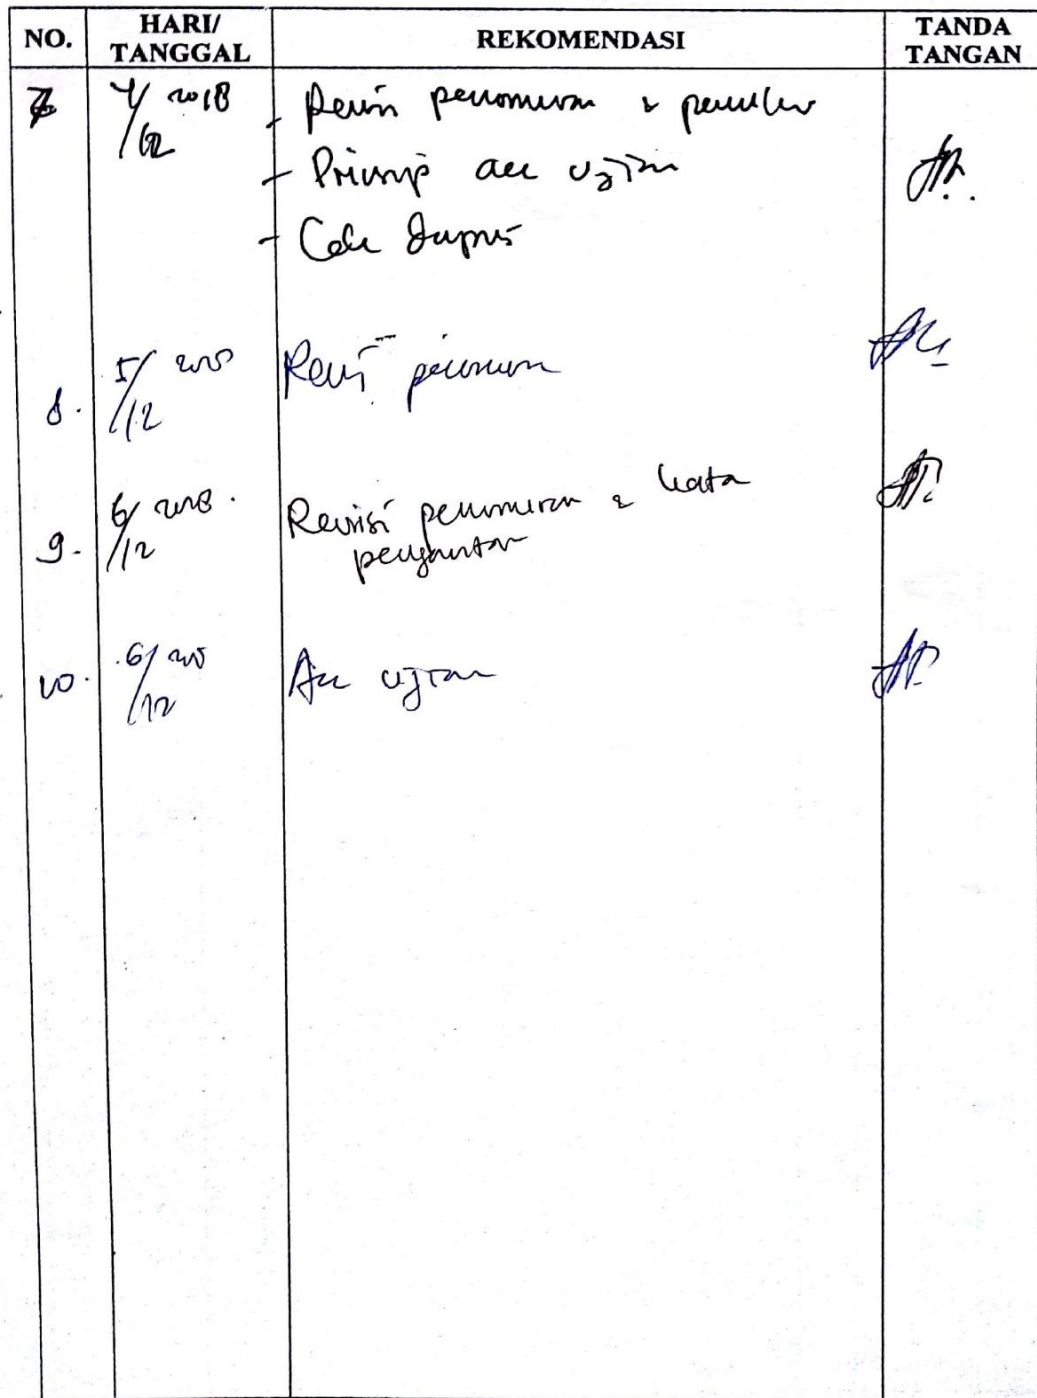 NO. HARI/ TANGGAL REKOMENDASI TANDA TANGAN
7 4/12 2018 - Revisi penomoran &
- Prinsip acc ujian
- Cek Dapus
8. 5/12 2018 Revisi penomoran
9. 6/12 2018. Revisi penomoran & kata
pengantar
10. 6/12 2018 Acc ujian